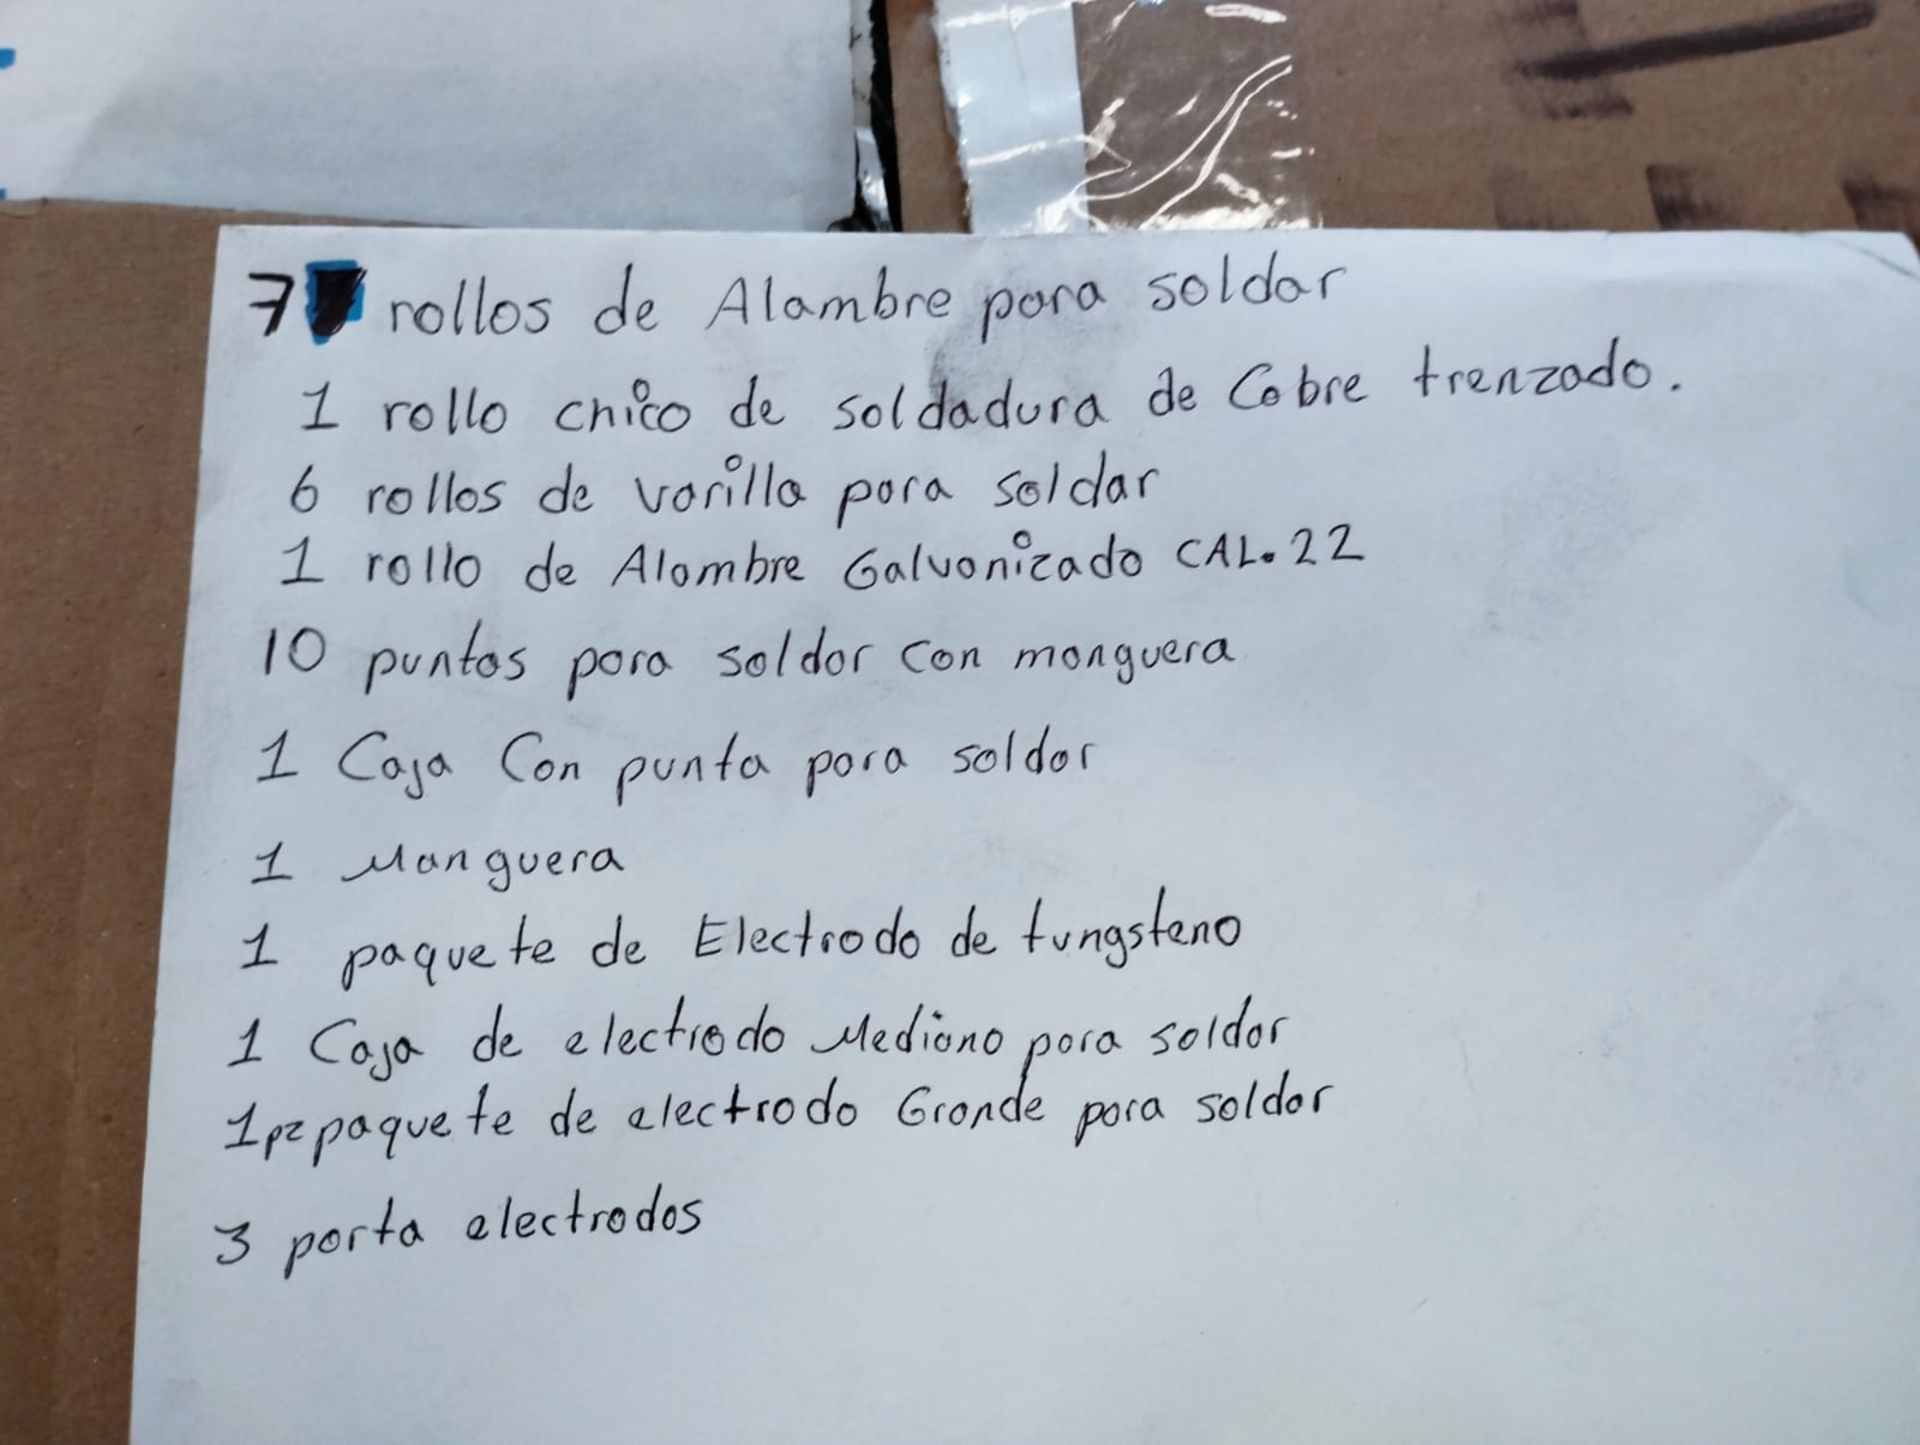 7 rollos de Alambre para soldar
1 rollo chico de soldadura de Cobre trenzado.
6 rollos de varilla para soldar
1 rollo de Alambre Galvanizado CAL. 22
10 puntas para soldar con manguera
1 Caja Con punta para soldar
1 Manguera
1 paquete de Electrodo de tungsteno
1 Caja de electrodo Mediano para soldar
1pz paquete de electrodo Grande para soldar
3 porta electrodos